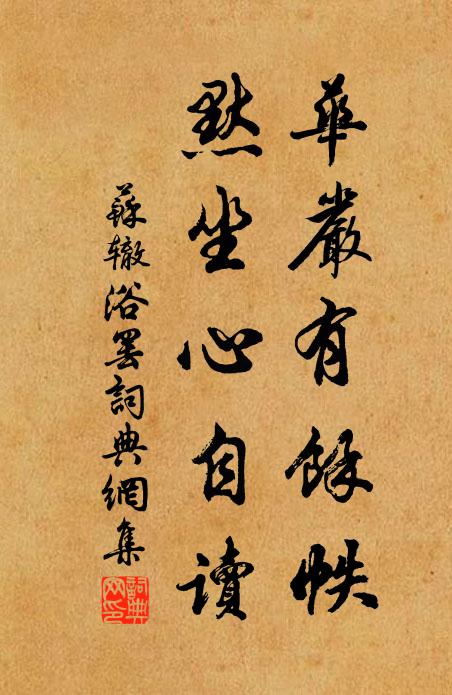 華嚴有餘帙
默坐心自讀
蘇轍浴罷詞典網集
詞典网印